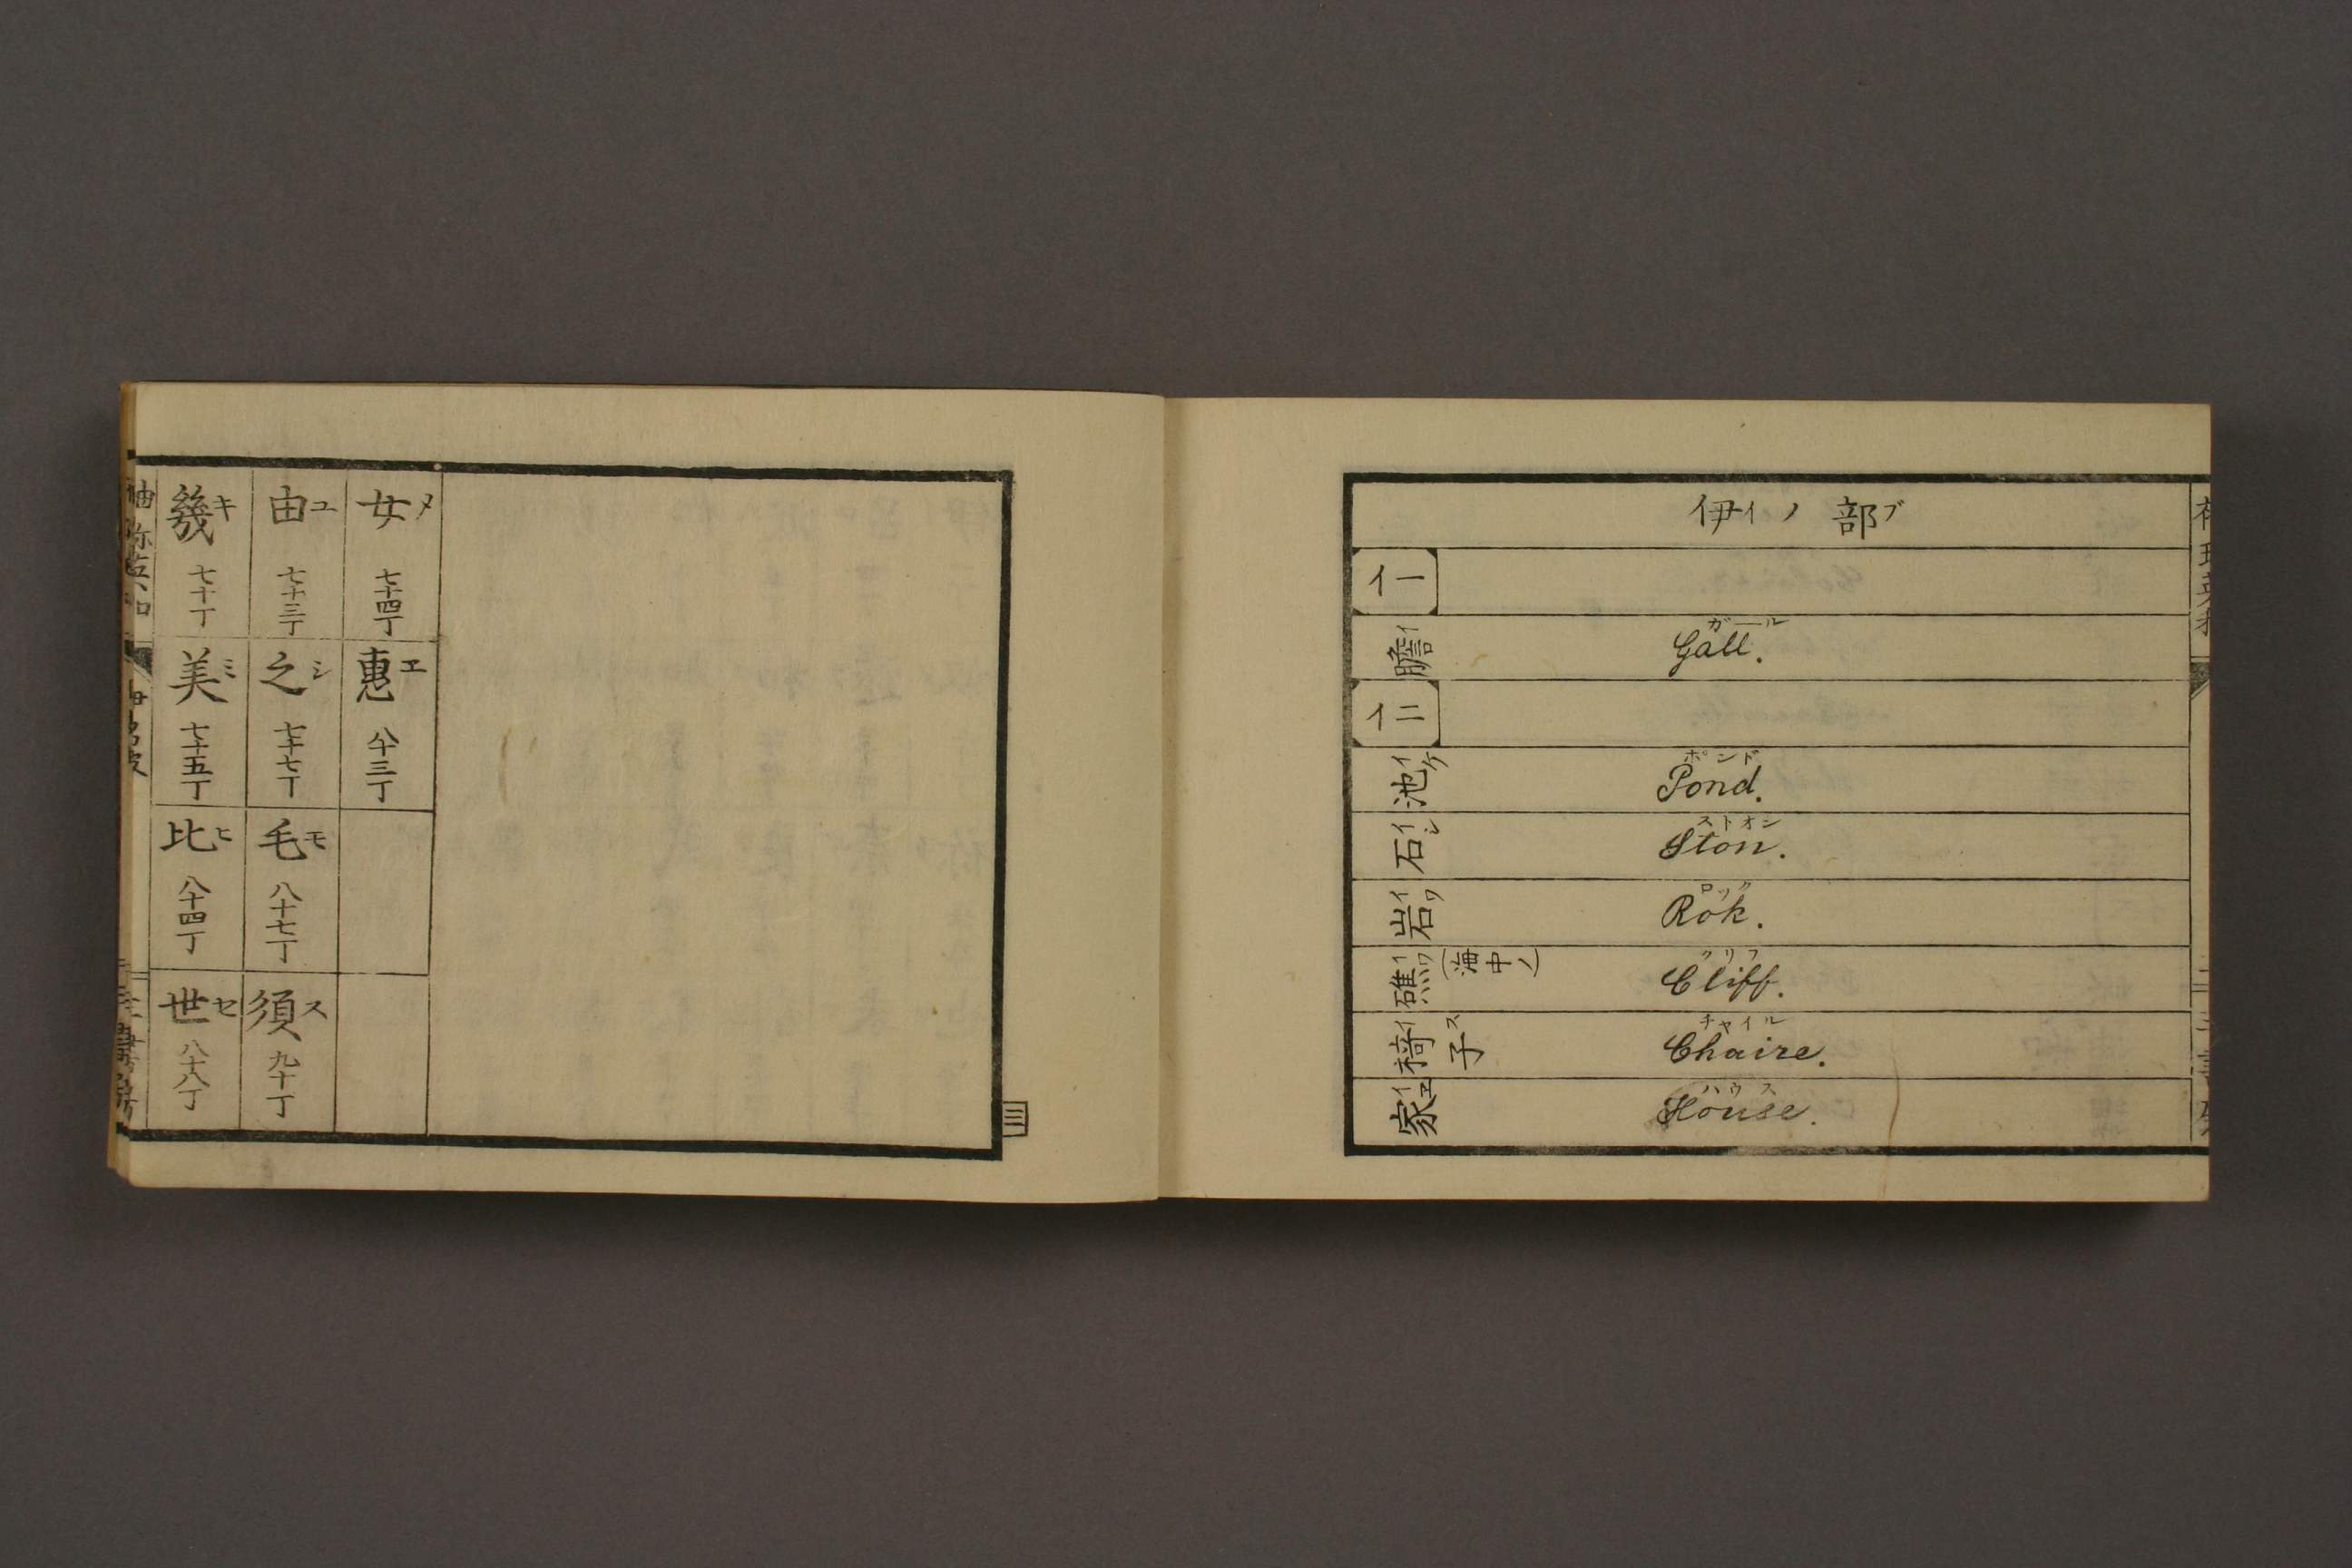 幾キ 七十丁
由ユ 七十三丁
女メ 七十四丁
美ミ 七十五丁
之シ 七十七丁
惠エ 八十三丁
比ヒ 八十四丁
毛モ 八十七丁
世セ 八十八丁
須ス 九十丁
三
伊イノ部ブ
イ一
膽イ Gall. ガール
イ二
池イケ Pond. ポンド
石イシ Ston. ストオン
岩イワ Rok. ロック
礁イワ(海中ノ) Cliff. クリフ
椅イ子ス Chaire. チャイル
家イエ House. ハウス